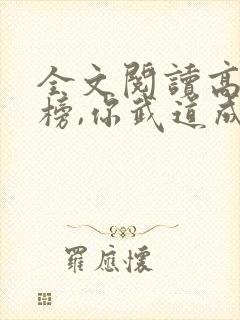 全文閱讀高
榜,你武道成
羅應懷